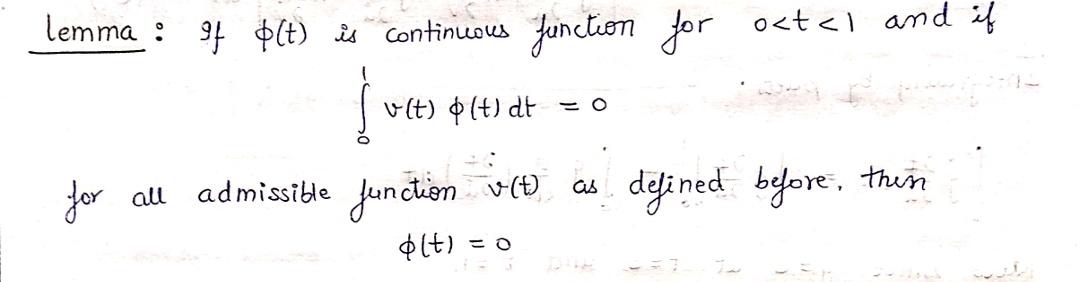 lemma : If ϕ(t) is continuous function for 0<t<1 and if
∫₀¹ v(t) ϕ(t) dt = 0
for all admissible function v(t) as defined before, then
ϕ(t) = 0